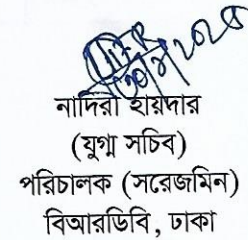 নাদিরা হায়দার
(যুগ্ম সচিব)
পরিচালক (সরেজমিন)
বিআরডিবি, ঢাকা